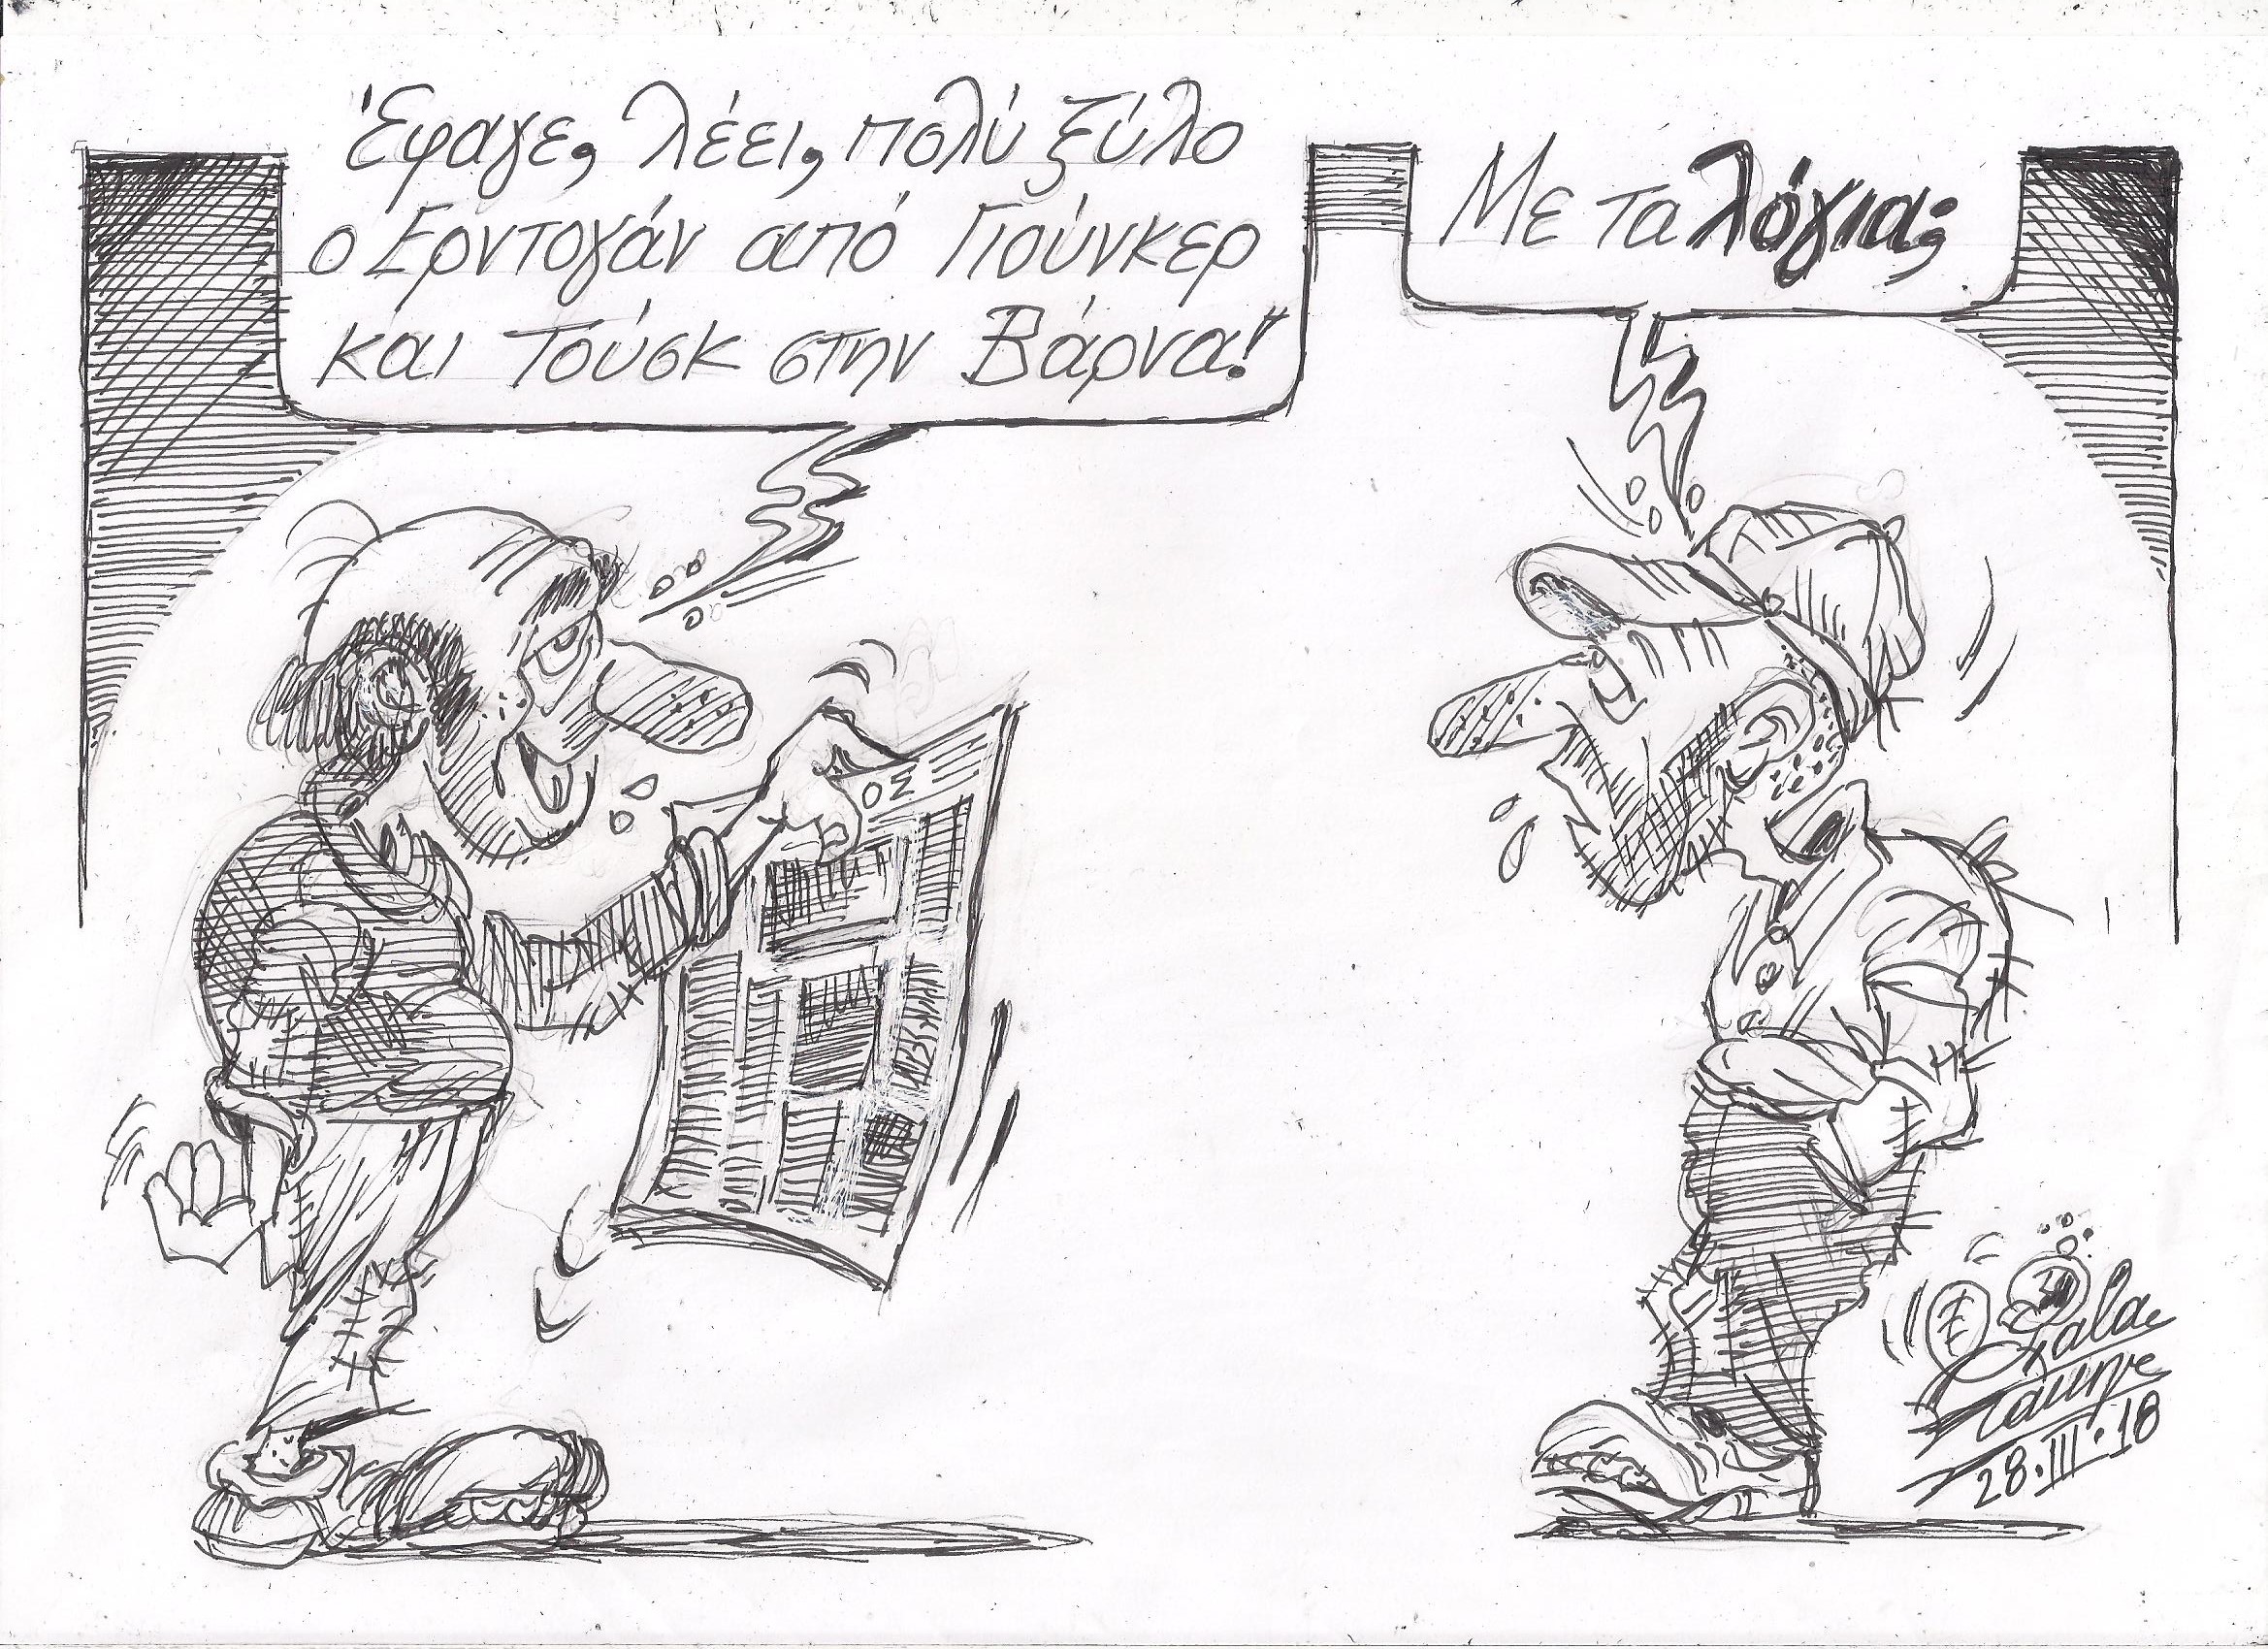 Έφαγε, λέει, πολύ ξύλο
ο Ερντογάν από Γιούνκερ
και Τούσκ στην Βάρνα!
Με τα λόγια;
ΟΣ
28.III.18